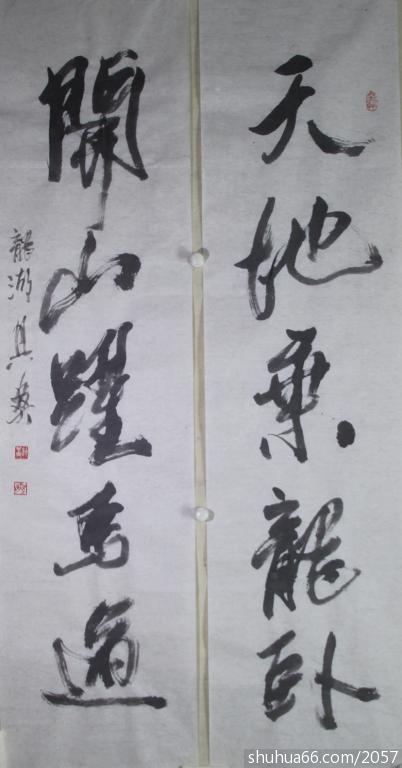 天地乘龍卧
關山躍馬過
龍湖
shuhua66.com/2057